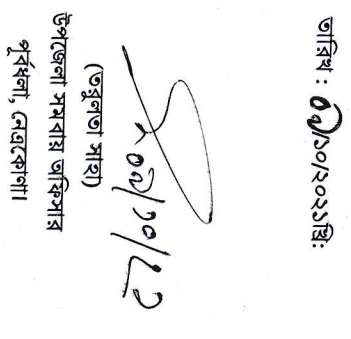 তারিখ : ০৯/১০/২০২১খ্রি:
০৯/১০/২১
(তরুলতা সাহা)
উপজেলা সমবায় অফিসার
পূর্বধলা, নেত্রকোণা।